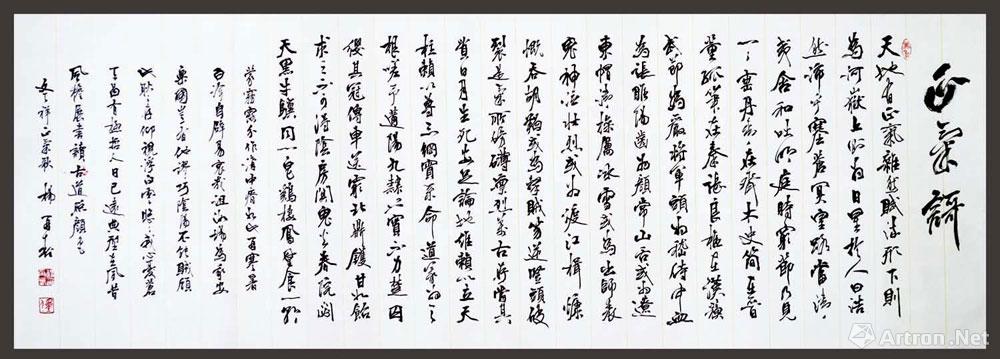 正氣謌
天地有正氣雜然賦流形下則
為河嶽上則為日星於人曰浩
然沛乎塞蒼冥皇路當清
夷含和吐明庭時窮節乃見
一一垂丹青在齊太史簡在晉
董狐筆在秦張良椎在漢蘇
武節為嚴將軍頭為嵇侍中血
為張睢陽齒為顏常山舌或為遼
東帽清操厲冰雪或為出師表
鬼神泣壯烈或為渡江楫慷
慨吞胡羯或為擊賊笏逆豎頭破
裂是氣所磅礴凜烈萬古存當其
貫日月生死安足論地維賴以立天
柱賴以尊三綱實系命道義為之
根嗟予遘陽九隸也實不力楚囚
纓其冠傳車送窮北鼎鑊甘如飴
求之不可得陰房闃鬼火春院閟
天黑牛驥同一皂鷄棲鳳凰食一朝
蒙霧露分作溝中瘠如此再寒暑
百沴自辟易哀哉沮洳場為我安
樂國豈有他謬巧陰陽不能賊顧
此耿仰視浮雲白悠我心悲蒼
哲人日已遠典型在夙昔
風檐展書讀古道照顏色
文 祥正氣歌 楊
Artron.Net